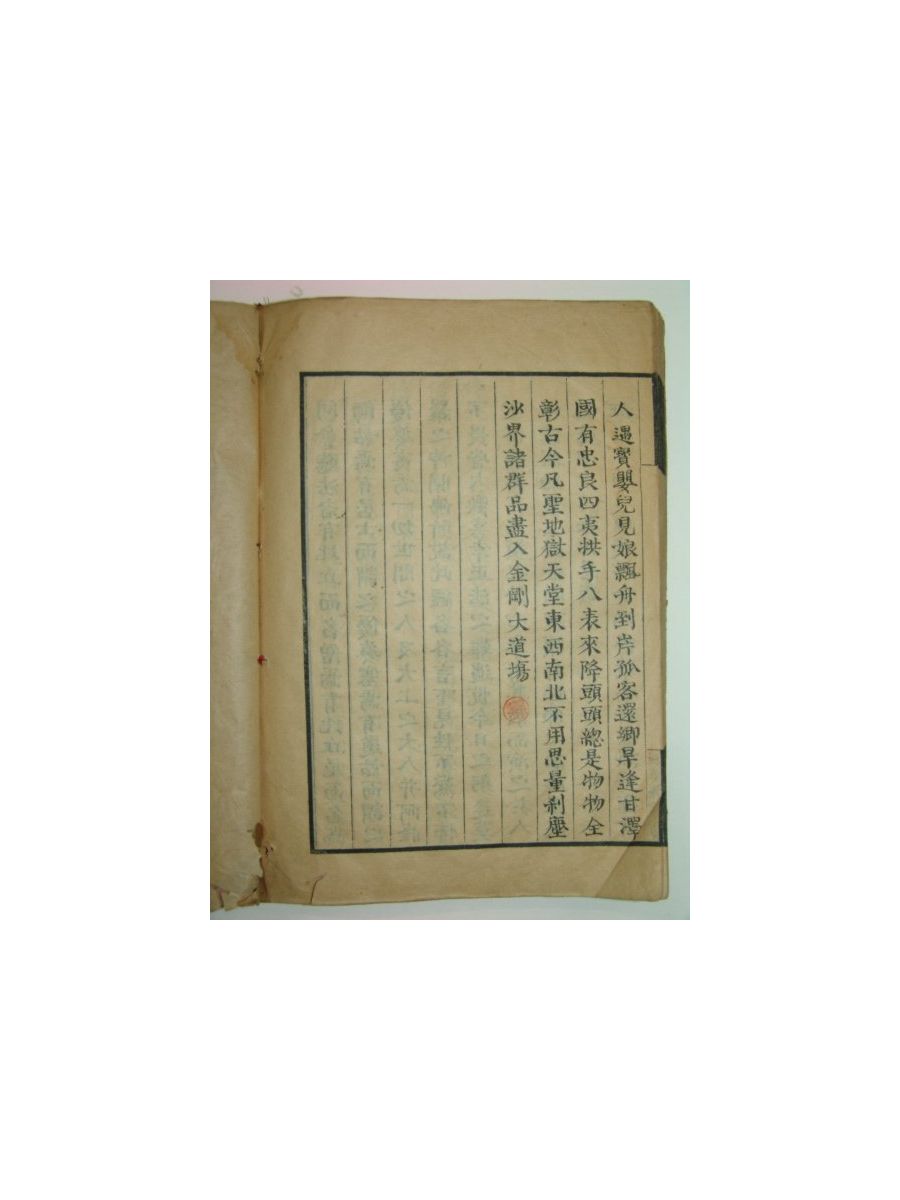 人遇寶嬰兒見娘飄舟到岸孤客還鄉旱逢甘澤
國有忠良四夷拱手八表來降頭頭總是物物全
彰古今凡聖地獄天堂東西南北不用思量刹塵
沙界諸群品盡入金剛大道場